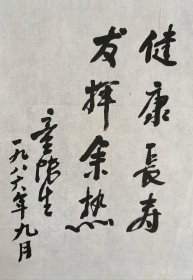 健康長寿
发挥余热
童陪生
一九八六年九月